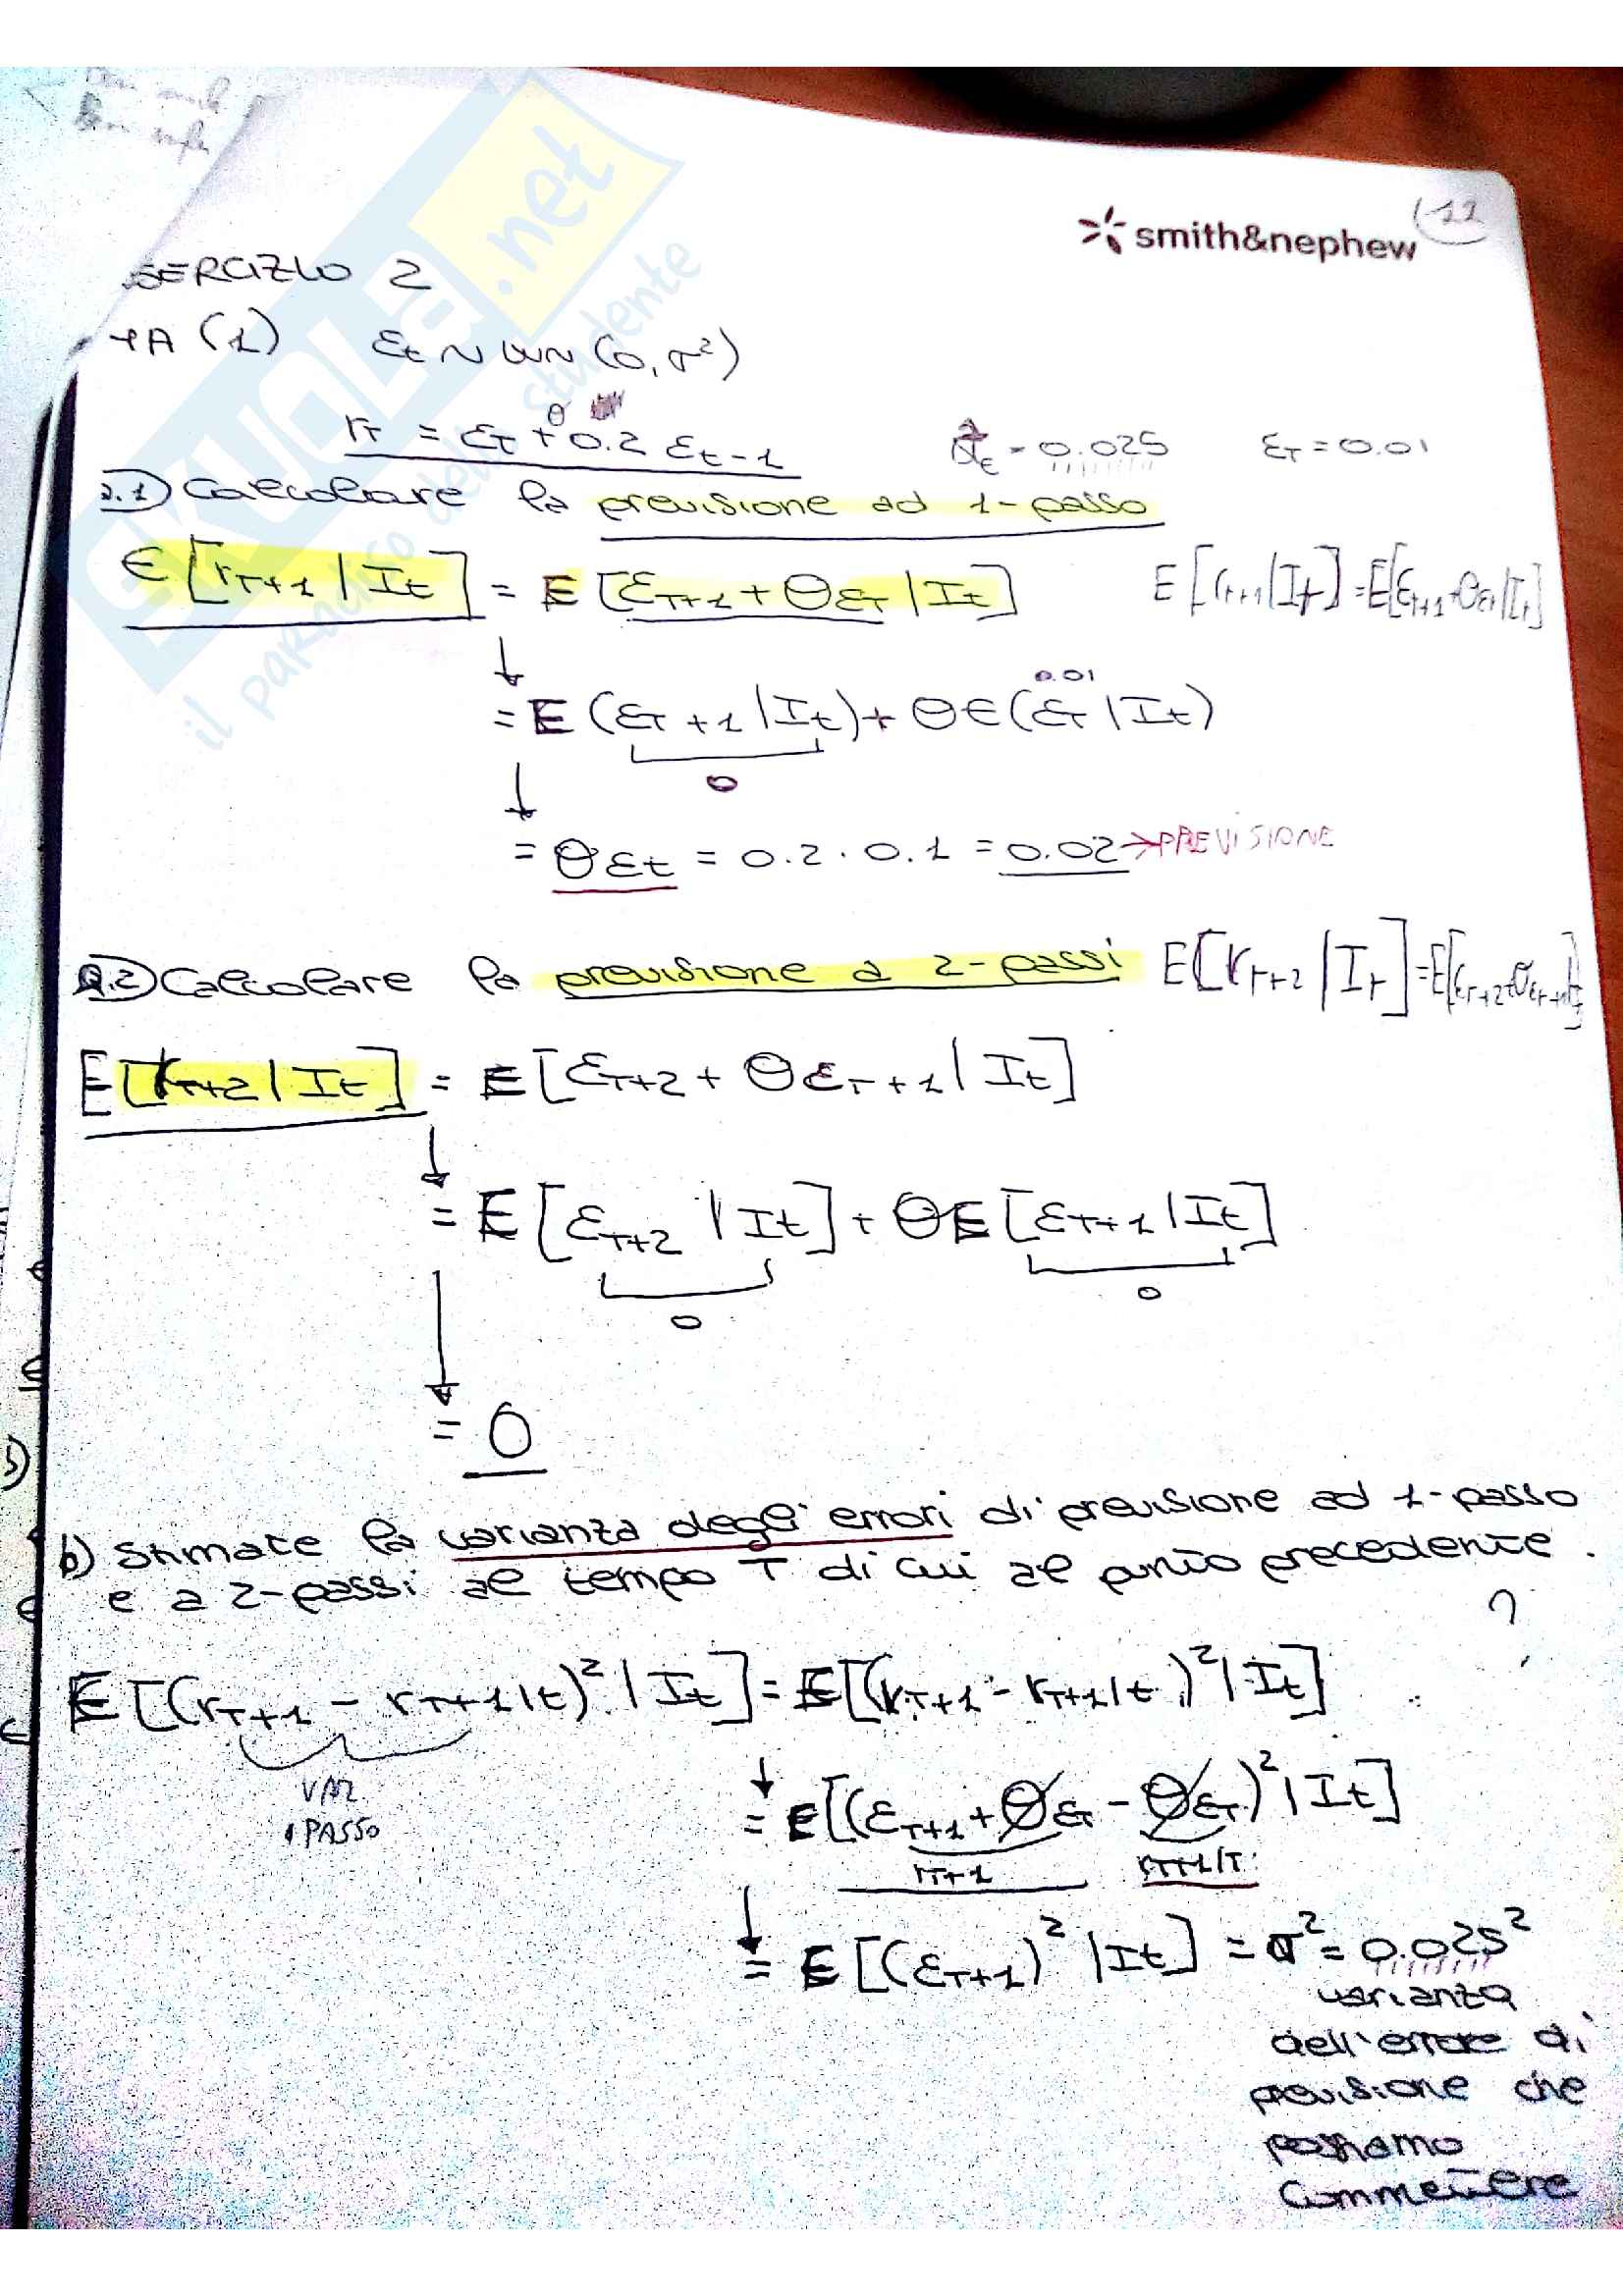 smith&nephew
SERCIZIO 2
MA (1) εt ~ WN (0, σ²)
θ
rT = εT + 0.2 εt-1 σ̂ε = 0.025 εT = 0.01
2.1) Calcolare la previsione ad 1-passo
E [rT+1 | It] = E [εT+1 + θεT | It] E [rT+1 | It] = E[εT+1 + θεT | It]
0.01
= E (εT+1 | It) + θE (εT | It)
0
= θεt = 0.2 · 0.1 = 0.02 → PREVISIONE
2.2) Calcolare la previsione a 2-passi E[rT+2 | It] = E[εT+2 + θεT+1 | It]
E [rT+2 | It] = E [εT+2 + θεT+1 | It]
= E [εT+2 | It] + θE [εT+1 | It]
0 0
= 0
b) Stimate la varianza degli errori di previsione ad 1-passo
e a 2-passi al tempo T di cui al punto precedente.
?
E [(rT+1 - rT+1|t)² | It] = E [(rT+1 - rT+1|t)² | It]
VAR
1 PASSO
= E [(εT+1 + θεT - θεT)² | It]
rT+1 rT+1|T
= E [(εT+1)² | It] = σ² = 0.025²
varianza
dell'errore di
previsione che
possiamo
commettere
SKUOLA.net
il paradiso dello studente